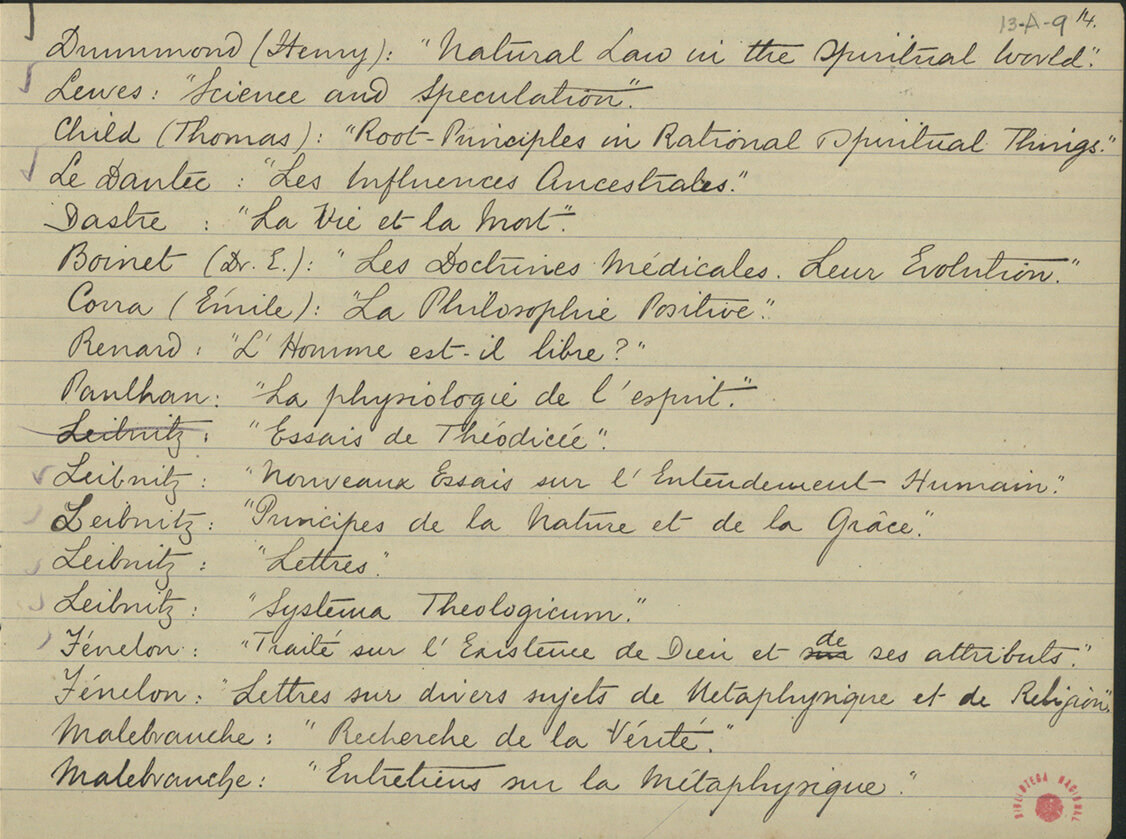 13-A-9 14.
Drummond (Henry): "Natural Law in the Spiritual World".
Lewes: "Science and Speculation".
Child (Thomas): "Root-Principles in Rational Spiritual Things."
Le Dantec : "Les Influences Ancestrales."
Dastre : "La Vie et la Mort".
Boinet (Dr. E.): "Les Doctrines Médicales. Leur Évolution."
Corra (Émile): "La Philosophie Positive".
Renard: "L'Homme est-il libre?"
Paulhan: "La physiologie de l'esprit".
Leibnitz: "Essais de Théodicée".
Leibnitz: "Nouveaux Essais sur l'Entendement Humain".
Leibnitz: "Principes de la Nature et de la Grâce".
Leibnitz: "Lettres".
Leibnitz: "Systema Theologicum."
Fénelon: "Traité sur l'Existence de Dieu et de ses attributs."
Fénelon: "Lettres sur divers sujets de Métaphysique et de Religion".
Malebranche: "Recherche de la Vérité."
Malebranche: "Entretiens sur la Métaphysique."
BIBLIOTECA NACIONAL